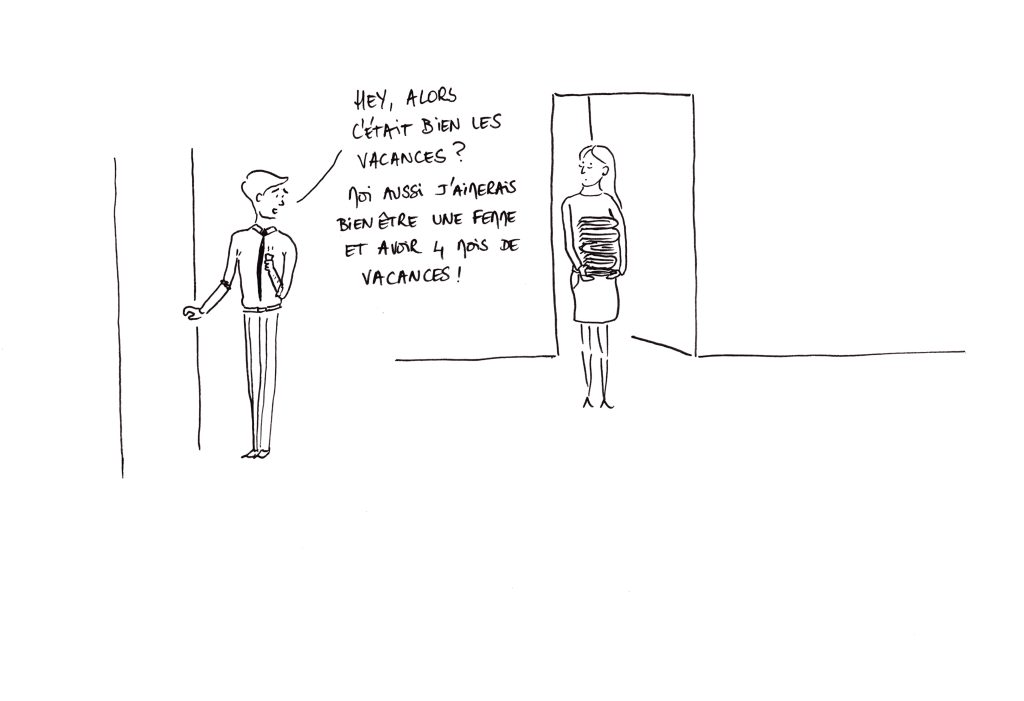 HEY, ALORS
C'ÉTAIT BIEN LES
VACANCES ?
MOI AUSSI J'AIMERAIS
BIEN ÊTRE UNE FEMME
ET AVOIR 4 MOIS DE
VACANCES !